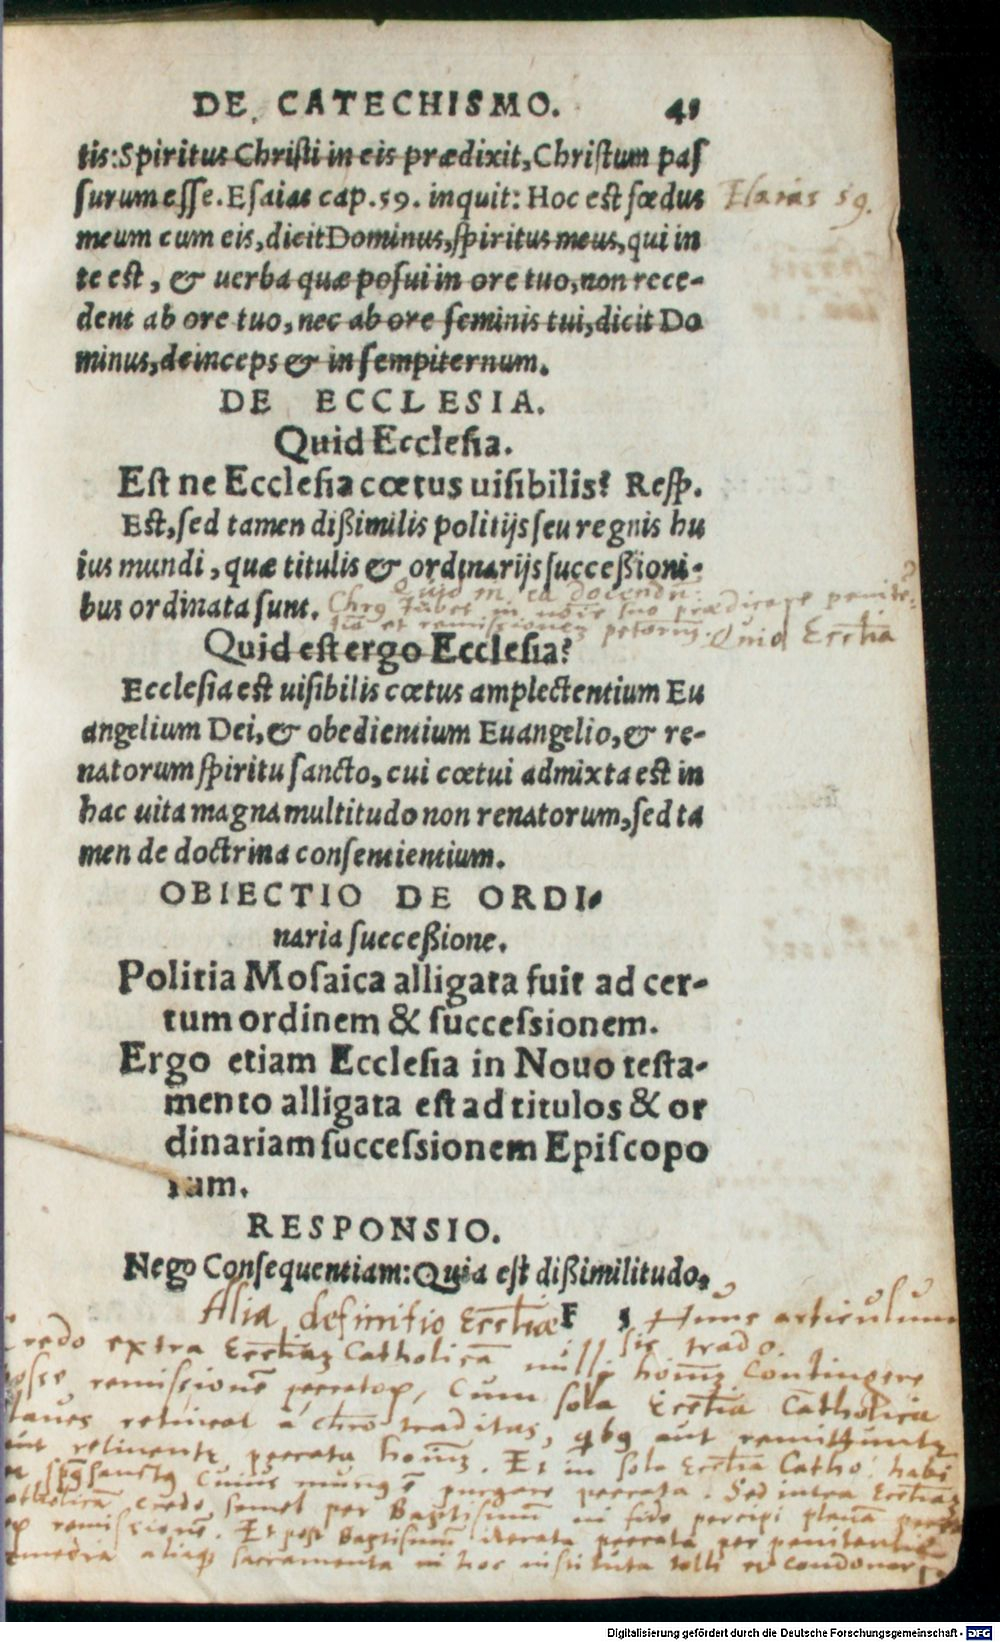 DE CATECHISMO. 41
tis: Spiritus Christi in eis prædixit, Christum pas
surum esse. Esaias cap. 59. inquit: Hoc est fœdus
Esaias 59.
meum cum eis, dicit Dominus, spiritus meus, qui in
te est, & uerba quæ posui in ore tuo, non rece-
dent ab ore tuo, nec ab ore seminis tui, dicit Do
minus, deinceps & in sempiternum.
DE ECCLESIA.
Quid Ecclesia.
Est ne Ecclesia cœtus uisibilis? Resp.
Est, sed tamen dißimilis politijs seu regnis hu
ius mundi, quæ titulis & ordinarijs succeßioni-
bus ordinata sunt.
Quid in ea docendū?
Chrūs iubet in noīe suo prædicare penitē-
tiā et remissionem petorum.
Quid Ecctia
Quid est ergo Ecclesia?
Ecclesia est uisibilis cœtus amplectentium Eu
angelium Dei, & obedientium Euangelio, & re-
natorum spiritu sancto, cui cœtui admixta est in
hac uita magna multitudo non renatorum, sed ta
men de doctrina consentientium.
OBIECTIO DE ORDI-
naria succeßione.
Politia Mosaica alligata fuit ad cer-
tum ordinem & successionem.
Ergo etiam Ecclesia in Nouo testa-
mento alligata est ad titulos & or
dinariam successionem Episcopo
rum.
RESPONSIO.
Nego Consequentiam: Quia est dißimilitudo,
F 5
Alia definitio Ecctiæ
Hunc articulum
sic trado.
Credo extra Ecctiaz Catholicā nulli homīnz contingere
posse remissionē peccator, Cum sola Ecctia Catholica
claues retineat a chro traditas, qbus aut remittuntr
aut retinentr peccata homīnz. Et in sola Ecctia Catho: habi
spūs sanctus Cuius munus ē purgare peccata. Sed intra Ecctiaz
catholicā credo semel per Baptismum in fide percipi planā
remissionē. Et post Baptismum iterata peccata per penitentiæ
remedia aliaqz sacramenta in hoc instituta tolli et condonari
Digitalisierung gefördert durch die Deutsche Forschungsgemeinschaft - DFG